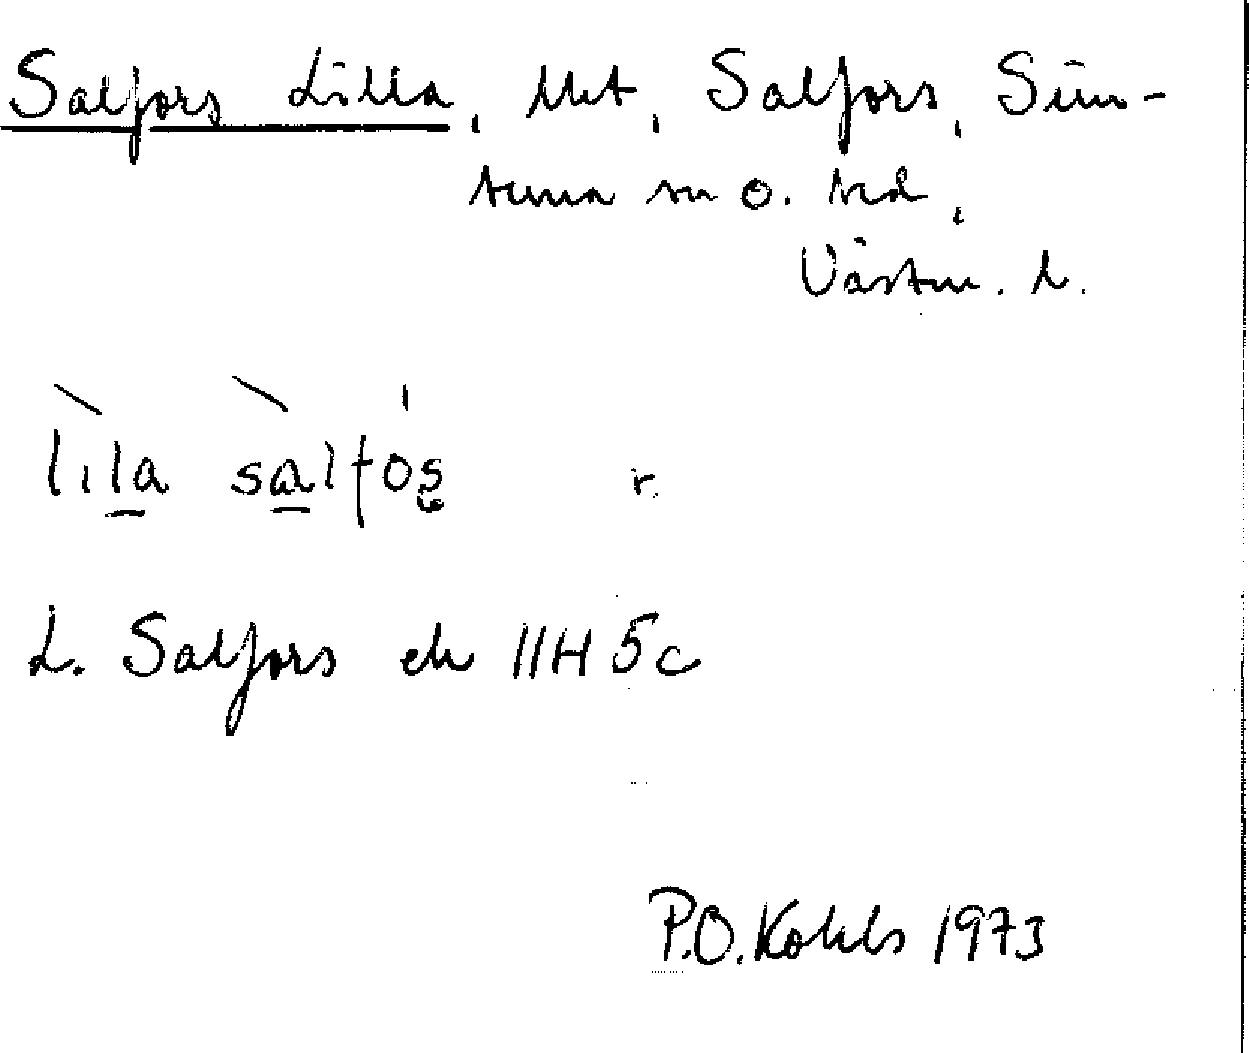 Salfors Lilla, Ukt, Salfors, Sim-
tuna sn o. hd,
Västm. l.
lila salfos r.
L. Salfors ek 11H 5c
P.O. Kohls 1973